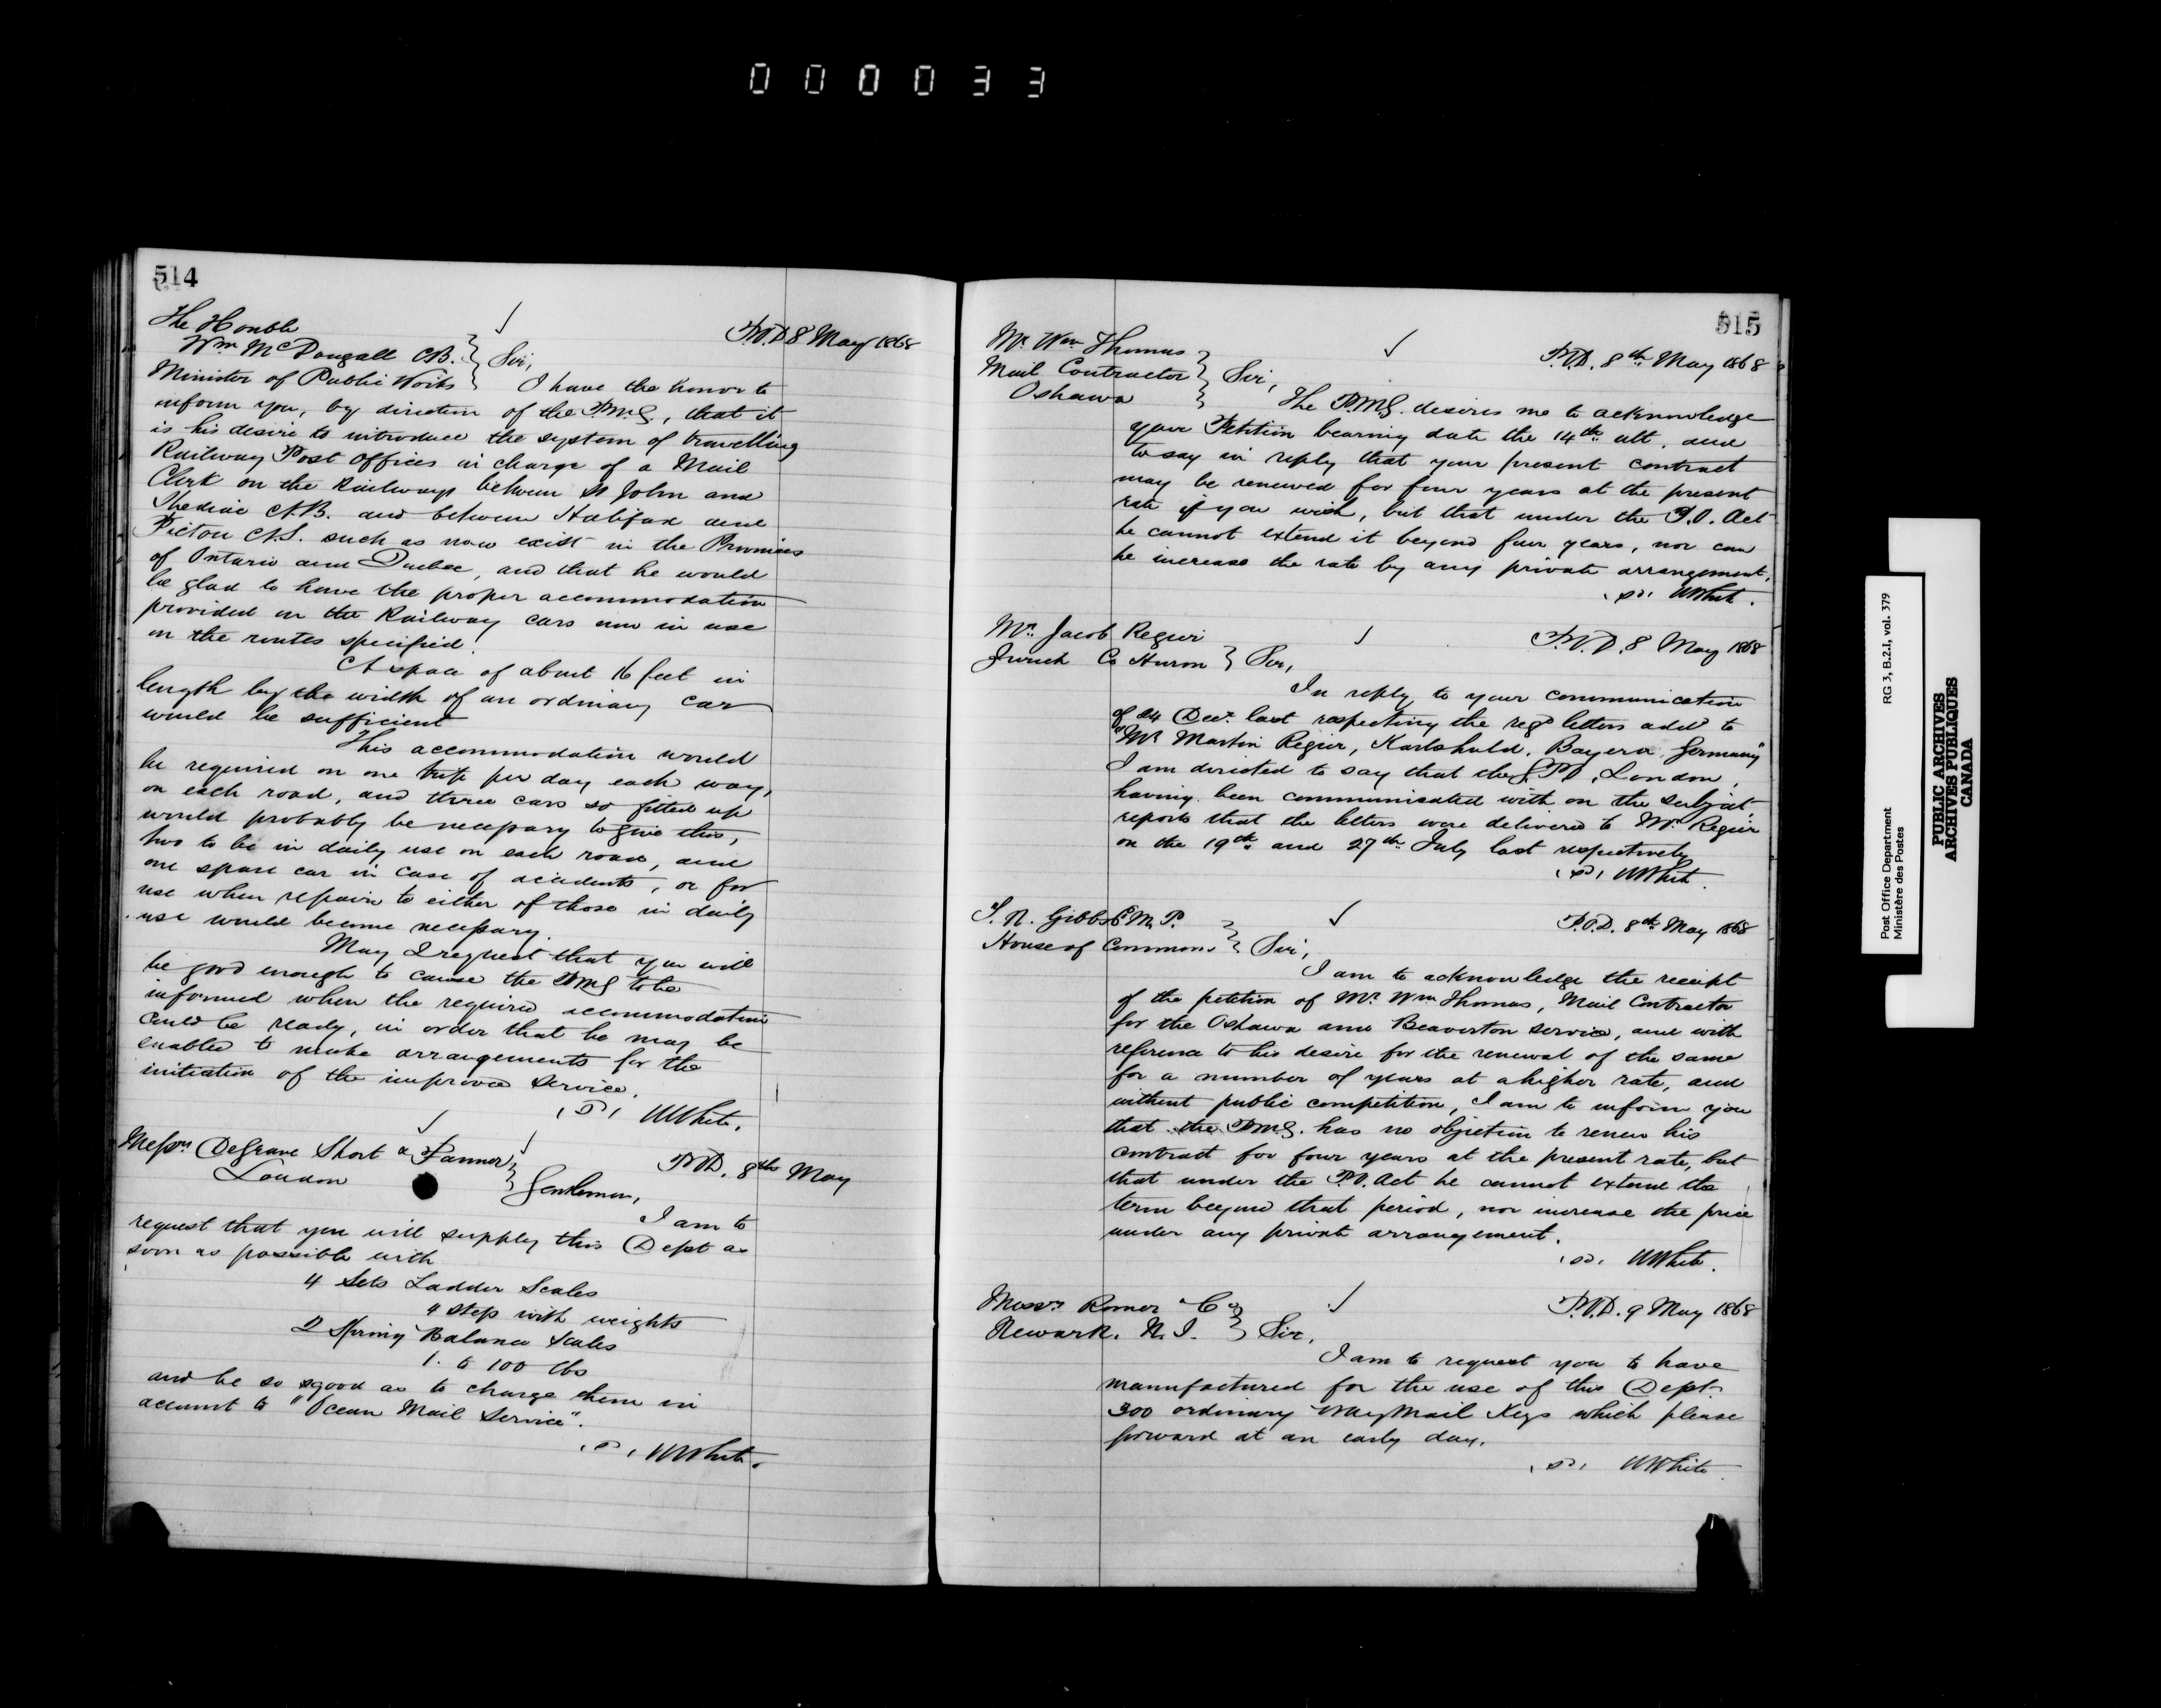 000033
514
The Honble
Wm McDougall CB.
Minister of Public Works
P.O.D 8 May 1868
Sir,
I have the honor to
inform you, by direction of the P.M.G., that it
is his desire to introduce the system of travelling
Railway Post Offices in charge of a Mail
Clerk on the Railways between St John and
Shediac N.B. and between Halifax and
Pictou N.S. such as now exist in the Provinces
of Ontario and Quebec, and that he would
be glad to have the proper accommodation
provided on the Railway cars now in use
on the routes specified.
A space of about 16 feet in
length by the width of an ordinary car
would be sufficient
This accommodation would
be required on one trip per day each way,
on each road, and three cars so fitted up
would probably be necessary to give this,
two to be in daily use on each road, and
one spare car in case of accidents, or for
use when repairs to either of those in daily
use would become necessary.
May I request that you will
be good enough to cause the PMG to be
informed when the required accommodation
could be ready, in order that he may be
enabled to make arrangements for the
initiation of the improved service.
WWhite.
Messrs DeGrave Short & Fanner
London
P.O.D. 8th May
Gentlemen,
I am to
request that you will supply this Dept as
soon as possible with
4 Sets Ladder Scales
4 step with weights
2 Spring Balance Scales
1. to 100 lbs
and be so good as to charge them in
account to "Ocean Mail Service".
WWhite.
515
Mr Wm Thomas
Mail Contractor
Oshawa
P.O.D. 8th May 1868
Sir,
The P.M.G. desires me to acknowledge
your Petition bearing date the 14th ult, and
to say in reply that your present contract
may be renewed for four years at the present
rate if you wish, but that under the P.O. Act
he cannot extend it beyond four years, nor can
he increase the rate by any private arrangement.
WWhite.
Mr. Jacob Regier
Zurich Co Huron
P.O.D. 8 May 1868
Sir,
In reply to your communication
of 24 Decr. last respecting the regd letters addd to
"Mr Martin Regier, Karlshuld, Bayern, Germany"
I am directed to say that the G.P.O, London,
having been communicated with on the subject
reports that the letters were delivered to Mr. Regier
on the 19th and 27th July last respectively
WWhite.
T. N. Gibbs E M.P.
House of Commons
P.O.D. 8th May 1868
Sir,
I am to acknowledge the receipt
of the petition of Mr Wm Thomas, Mail Contractor
for the Oshawa and Beaverton service, and with
reference to his desire for the renewal of the same
for a number of years at a higher rate, and
without public competition, I am to inform you
that the P.M.G. has no objection to renew his
contract for four years at the present rate, but
that under the P.O. Act he cannot extend the
term beyond that period, nor increase the price
under any private arrangement.
WWhite.
Messrs Romer & Co
Newark. N.J.
P.O.D. 9 May 1868
Sir,
I am to request you to have
manufactured for the use of this Dept.
300 ordinary Way Mail Keys which please
forward at an early day.
WWhite
Post Office Department
Ministère des Postes
RG 3, B.2.I, vol. 379
PUBLIC ARCHIVES
ARCHIVES PUBLIQUES
CANADA